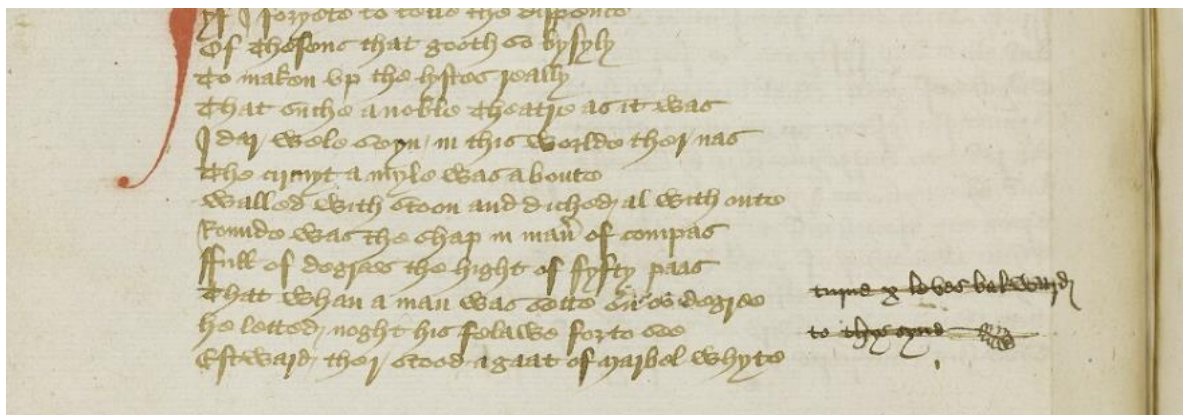 yf I foryete to telle the dispence
Of Theseus that gooth so bysyly
To maken vp the lystes really
That suche a noble theatre as it was
I dar wele seyn in this worlde ther nas
The circuyt a myle was a boute
Walled with stoon and diched al with oute
Rounde was the shap in maner of compas
ffull of degrees the hight of fyfty paas
That whan a man was sette on o degree
he letted noght his felawe for to see
Estward ther stood a gaat of marbel whyte
turne x leves bakward
to thys synd